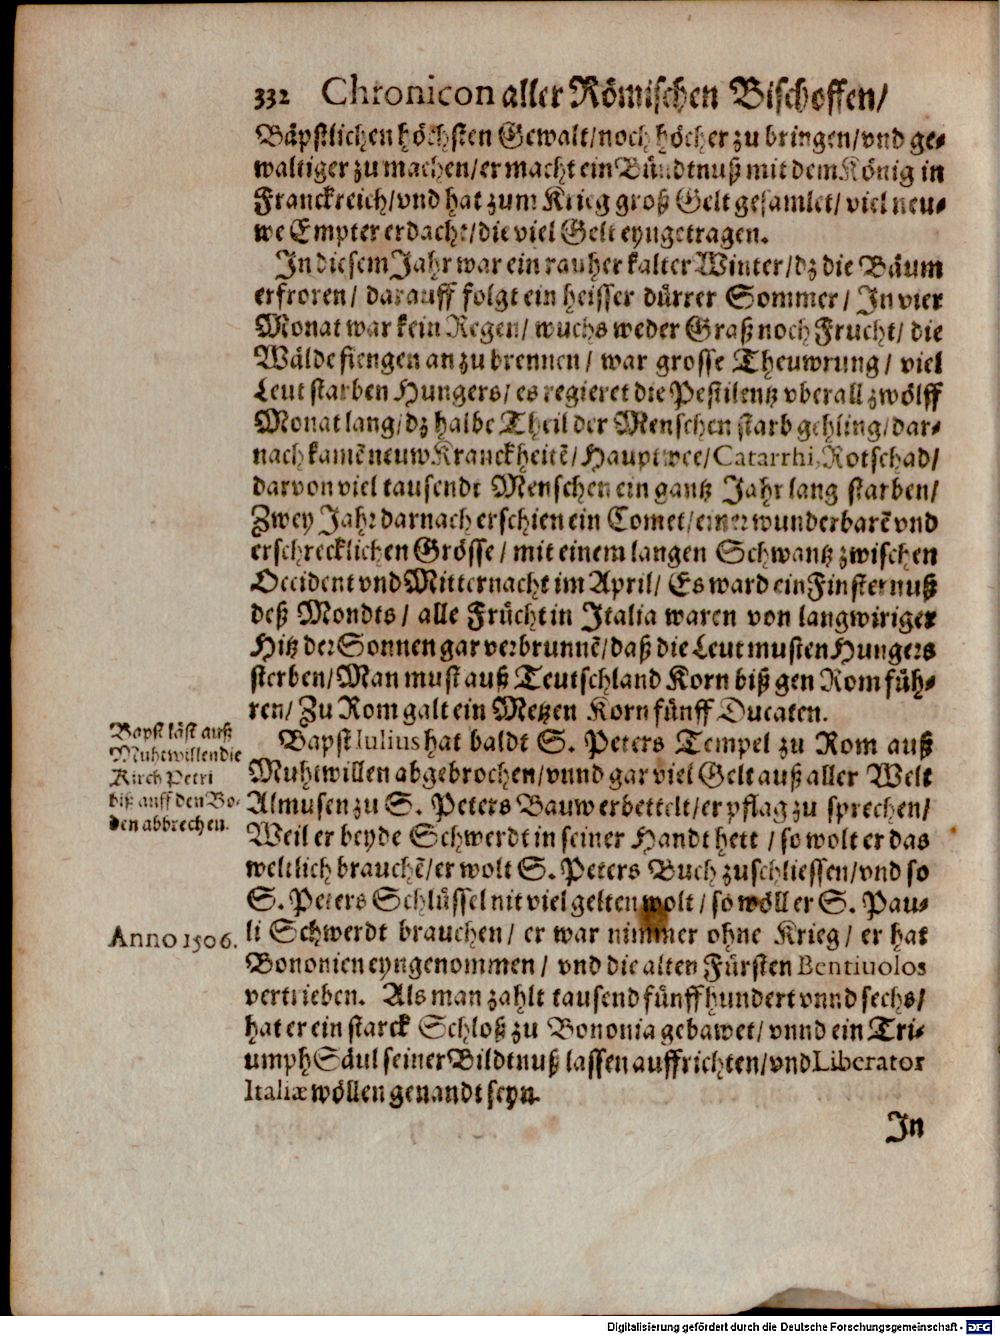 332 Chronicon aller Römischen Bischoffen/
Bäpstlichen höchsten Gewalt/noch höcher zu bringen/vnd ge-
waltiger zu machen/er macht ein Bündtnuß mit dem König in
Franckreich/vnd hat zum Krieg groß Gelt gesamlet/viel neu-
we Empter erdacht/die viel Gelt eyngetragen.
In diesem Jahr war ein rauher kalter Winter/dz die Bäum
erfroren/ darauff folgt ein heisser dürrer Sommer/ In vier
Monat war kein Regen/ wuchs weder Graß noch Frucht/ die
Wälde fiengen an zu brennen/ war grosse Theuwrung/ viel
Leut starben Hungers/ es regieret die Pestilentz vberall zwölff
Monat lang/dz halbe Theil der Menschen starb gehling/dar-
nach kamē neuw Kranckheitē/ Hauptwee/Catarrhi, Rotschad/
darvon viel tausendt Menschen ein gantz Jahr lang starben/
Zwey Jahr darnach erschien ein Comet/einer wunderbarē vnd
erschrecklichen Grösse/ mit einem langen Schwantz zwischen
Occident vnd Mitternacht im April/ Es ward ein Finsternuß
deß Mondts/ alle Frücht in Italia waren von langwiriger
Hitz der Sonnen gar verbrunnē/daß die Leut musten Hungers
sterben/Man must auß Teutschland Korn biß gen Rom füh-
ren/ Zu Rom galt ein Metzen Korn fünff Ducaten.
Bapst läst auß
Muhtwillen die
Kirch Petri
biß auff den Bo-
den abbrechen.
Bapst Iulius hat baldt S. Peters Tempel zu Rom auß
Muhtwillen abgebrochen/vnnd gar viel Gelt auß aller Welt
Almusen zu S. Peters Bauw erbettelt/er pflag zu sprechen/
Weil er beyde Schwerdt in seiner Handt hett / so wolt er das
weltlich brauchē/er wolt S. Peters Buch zuschliessen/vnd so
S. Peters Schlüssel nit viel gelten wolt/ so wöll er S. Pau-
Anno 1506.
li Schwerdt brauchen/ er war nimmer ohne Krieg/ er hat
Bononien eyngenommen/ vnd die alten Fürsten Bentiuolos
vertrieben. Als man zahlt tausend fünffhundert vnnd sechs/
hat er ein starck Schloß zu Bononia gebawet/ vnnd ein Tri-
umph Säul seiner Bildtnuß lassen auffrichten/vnd Liberator
Italiæ wöllen genandt seyn.
In
Digitalisierung gefördert durch die Deutsche Forschungsgemeinschaft - DFG